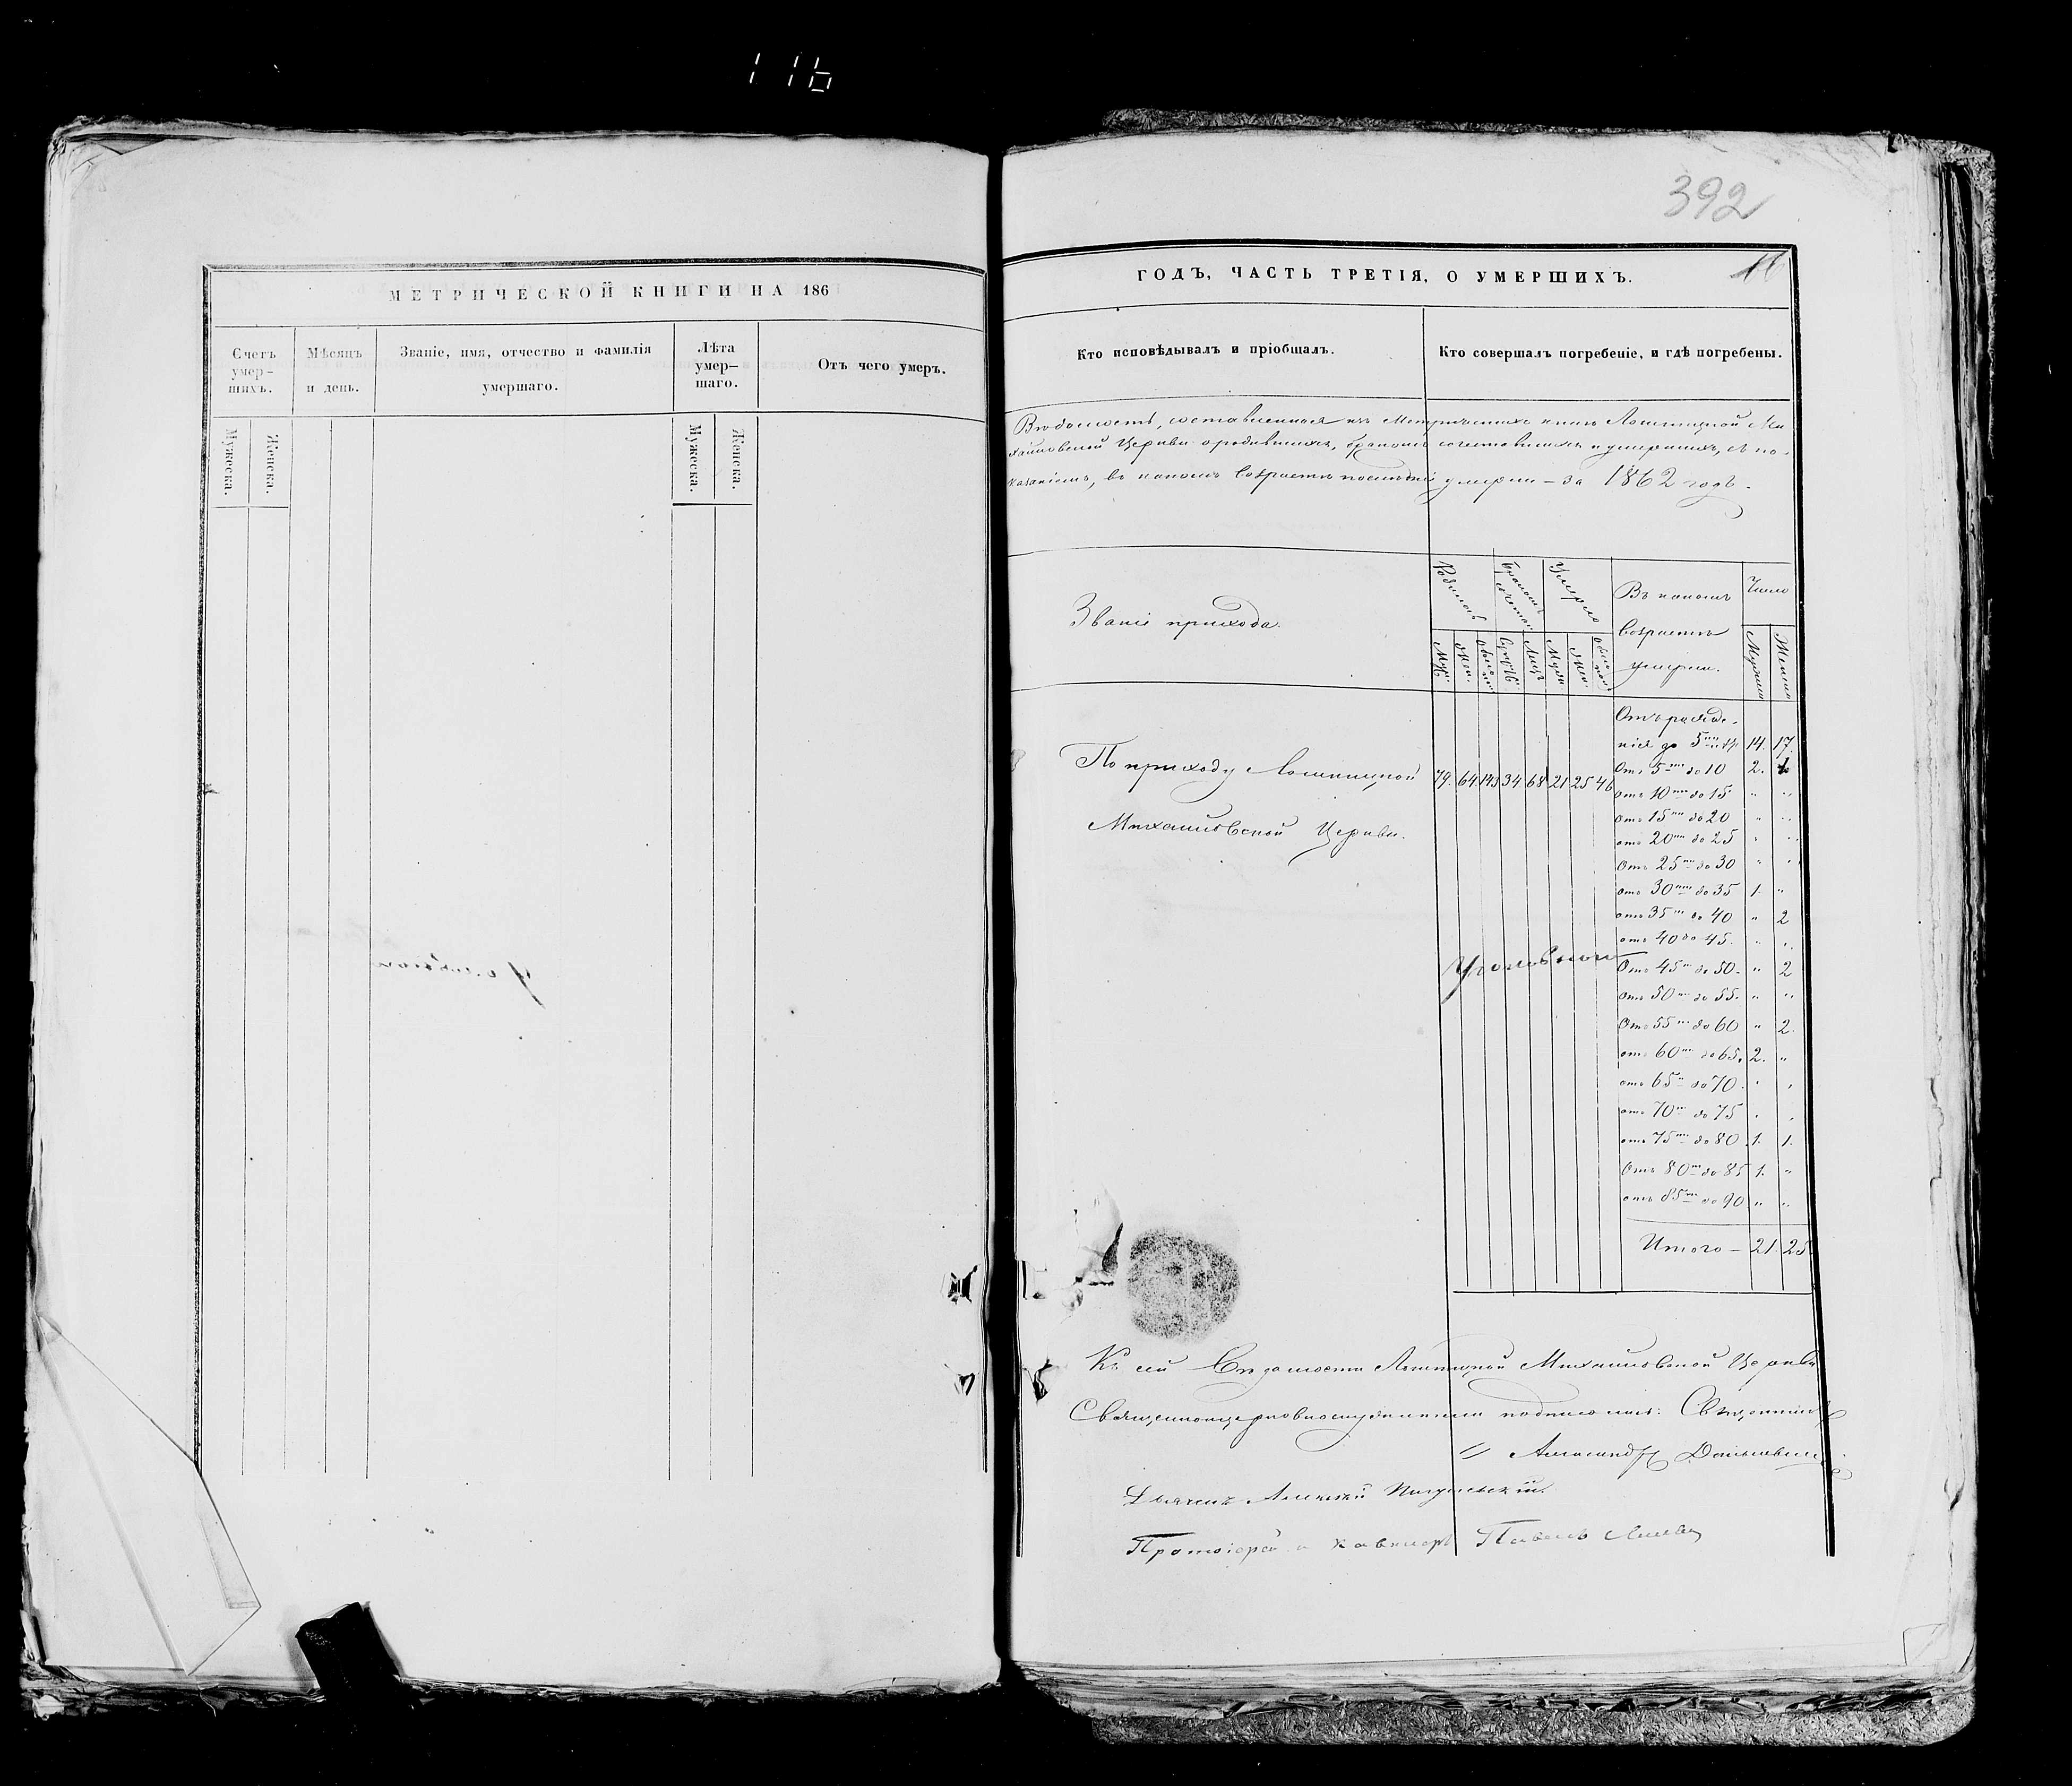 116
392
МЕТРИЧЕСКОЙ КНИГИ НА 186
Счетъ умер-шихъ.
Мѣсяцъ и день.
Званіе, имя, отчество и фамилія умершаго.
Лѣта умер-шаго.
Отъ чего умеръ.
Мужеска.
Женска.
Мужеска.
Женска.
ГОДЪ, ЧАСТЬ ТРЕТІЯ, О УМЕРШИХЪ.
11
Кто исповѣдывалъ и пріобщалъ.
Кто совершалъ погребеніе, и гдѣ погребены.
Вѣдомость, составленная изъ Метрическихъ книгъ Лошницкой Ми-
хайловской Церкви о родившихся, бракомъ сочетавшихся и умершихъ, съ по-
казаніемъ, въ какомъ возрастѣ послѣдніе умерли – за 1862 годъ.
Званіе прихода.
Родилось
Бракомъ сочетал.
Умерло
Въ какомъ возрастѣ умерли.
Число
Муж.
Жен.
Обоего пол.
Лицъ
Муж.
Жен.
Обоего пол.
По приходу Лошницкой
Михайловской Церкви.
79. 64 143 34 68 21 25 46
Отъ рожде-
нія до 5 14. 17.
Отъ 5 до 10 2. 1
отъ 10 до 15 " "
отъ 15 до 20 " "
отъ 20 до 25 " "
отъ 25 до 30 " "
отъ 30 до 35 1. "
отъ 35 до 40 " 2
отъ 40 до 45. " "
Отъ 45 до 50. " 2
отъ 50 до 55. " "
Отъ 55 до 60 " 2.
отъ 60 до 65. 2. "
отъ 65 до 70. " "
отъ 70 до 75 " "
отъ 75 до 80 1. 1.
Отъ 80 до 85 1. "
отъ 85 до 90 " "
Итого – 21. 25
Къ сей Вѣдомости Лошницкой Михайловской Церкви
Священноцерковнослужители подписались: Священникъ
Александръ
Дьячекъ Алексѣй
Протоіерей и кавалеръ Павелъ